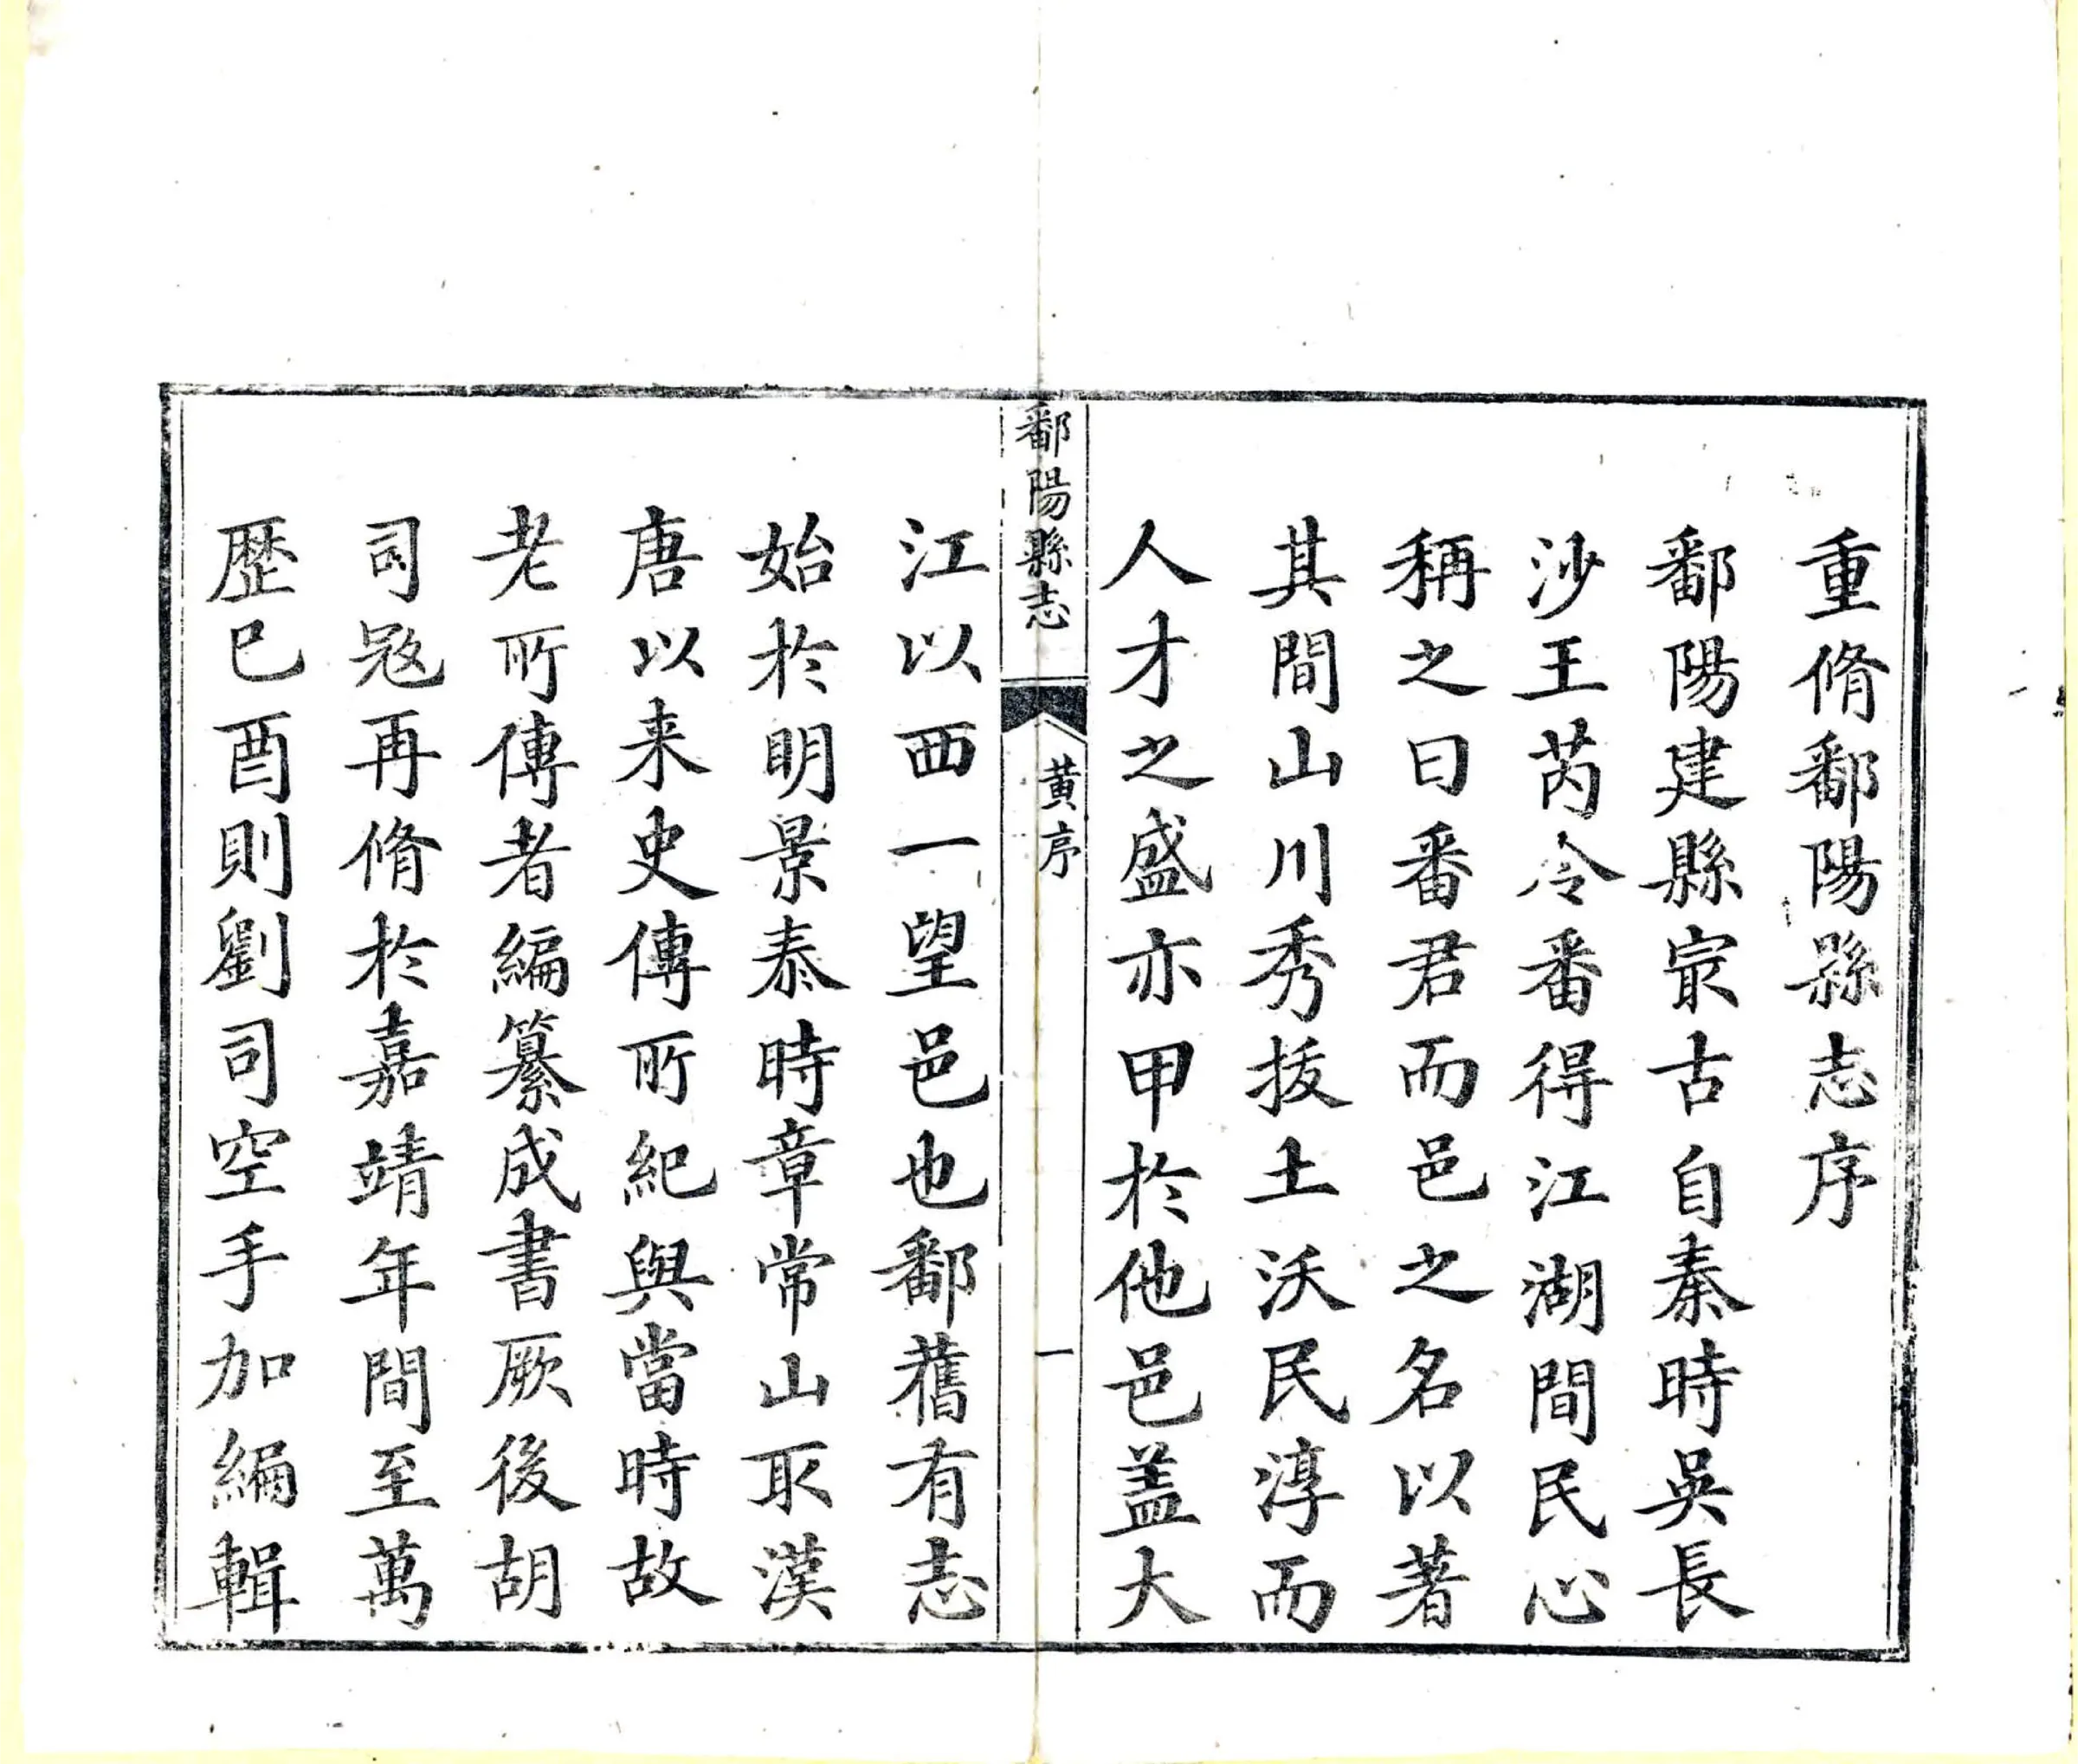 重脩鄱陽縣志序
鄱陽建縣冣古自秦時吳長
沙王芮令番得江湖間民心
稱之曰番君而邑之名以著
其間山川秀拔土沃民淳而
人才之盛亦甲於他邑蓋大
鄱陽縣志
黄序
一
江以西一望邑也鄱舊有志
始於明景泰時章常山取漢
唐以来史傳所紀與當時故
老所傳者編纂成書厥後胡
司冦再脩於嘉靖年間至萬
歷已酉則劉司空手加編輯